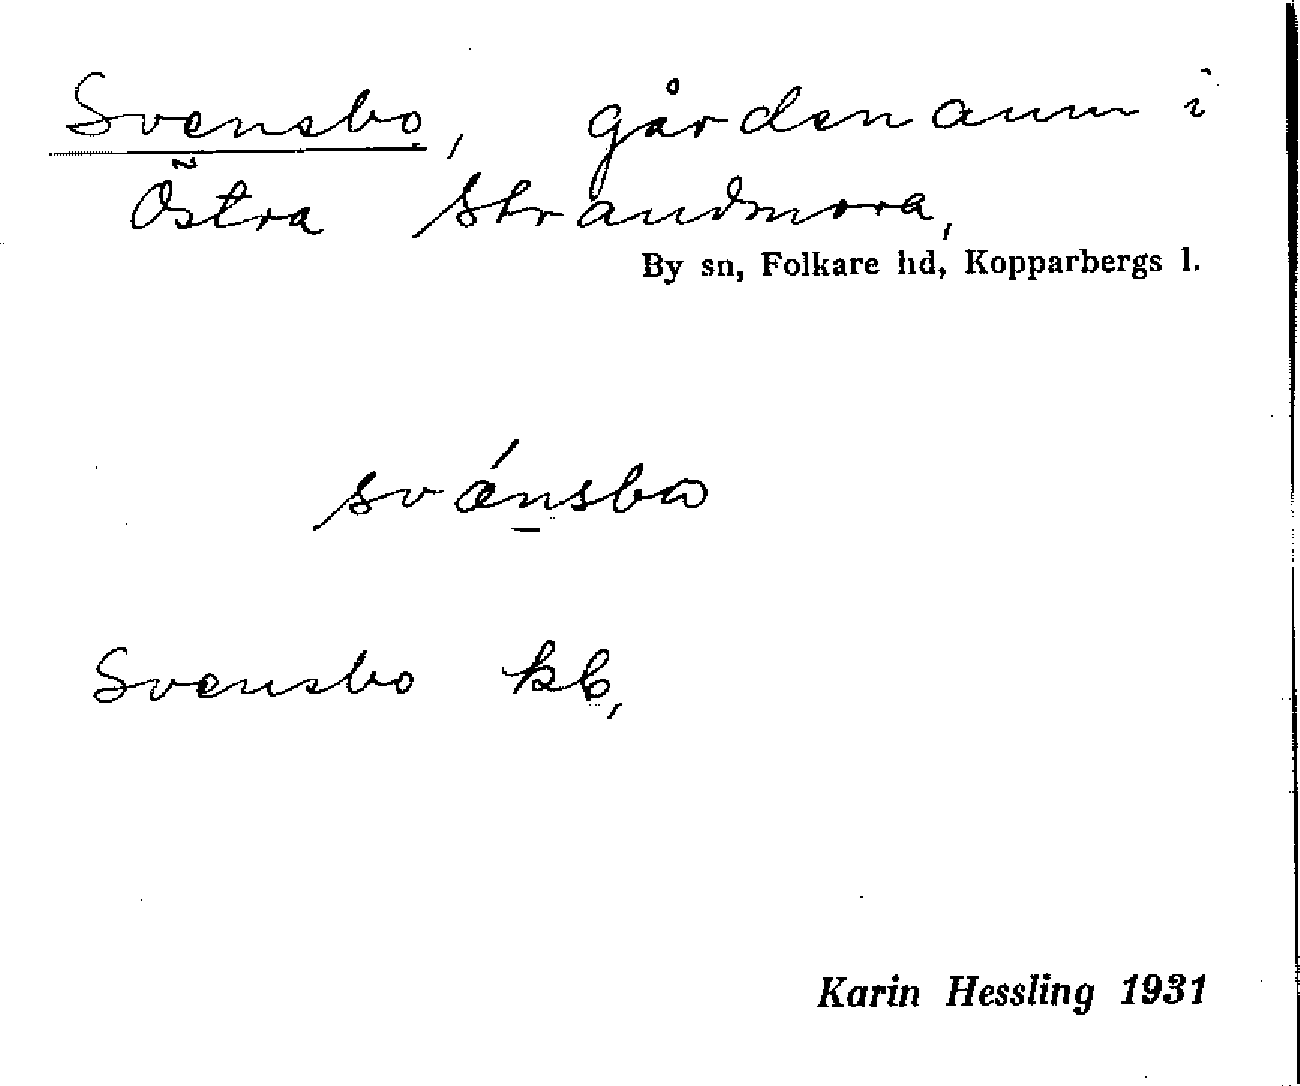 Svensbo, gårdenamn i
Östra Strandmora,
By sn, Folkare hd, Kopparbergs l.
svǽnsbω
Svensbo kb,
Karin Hessling 1931